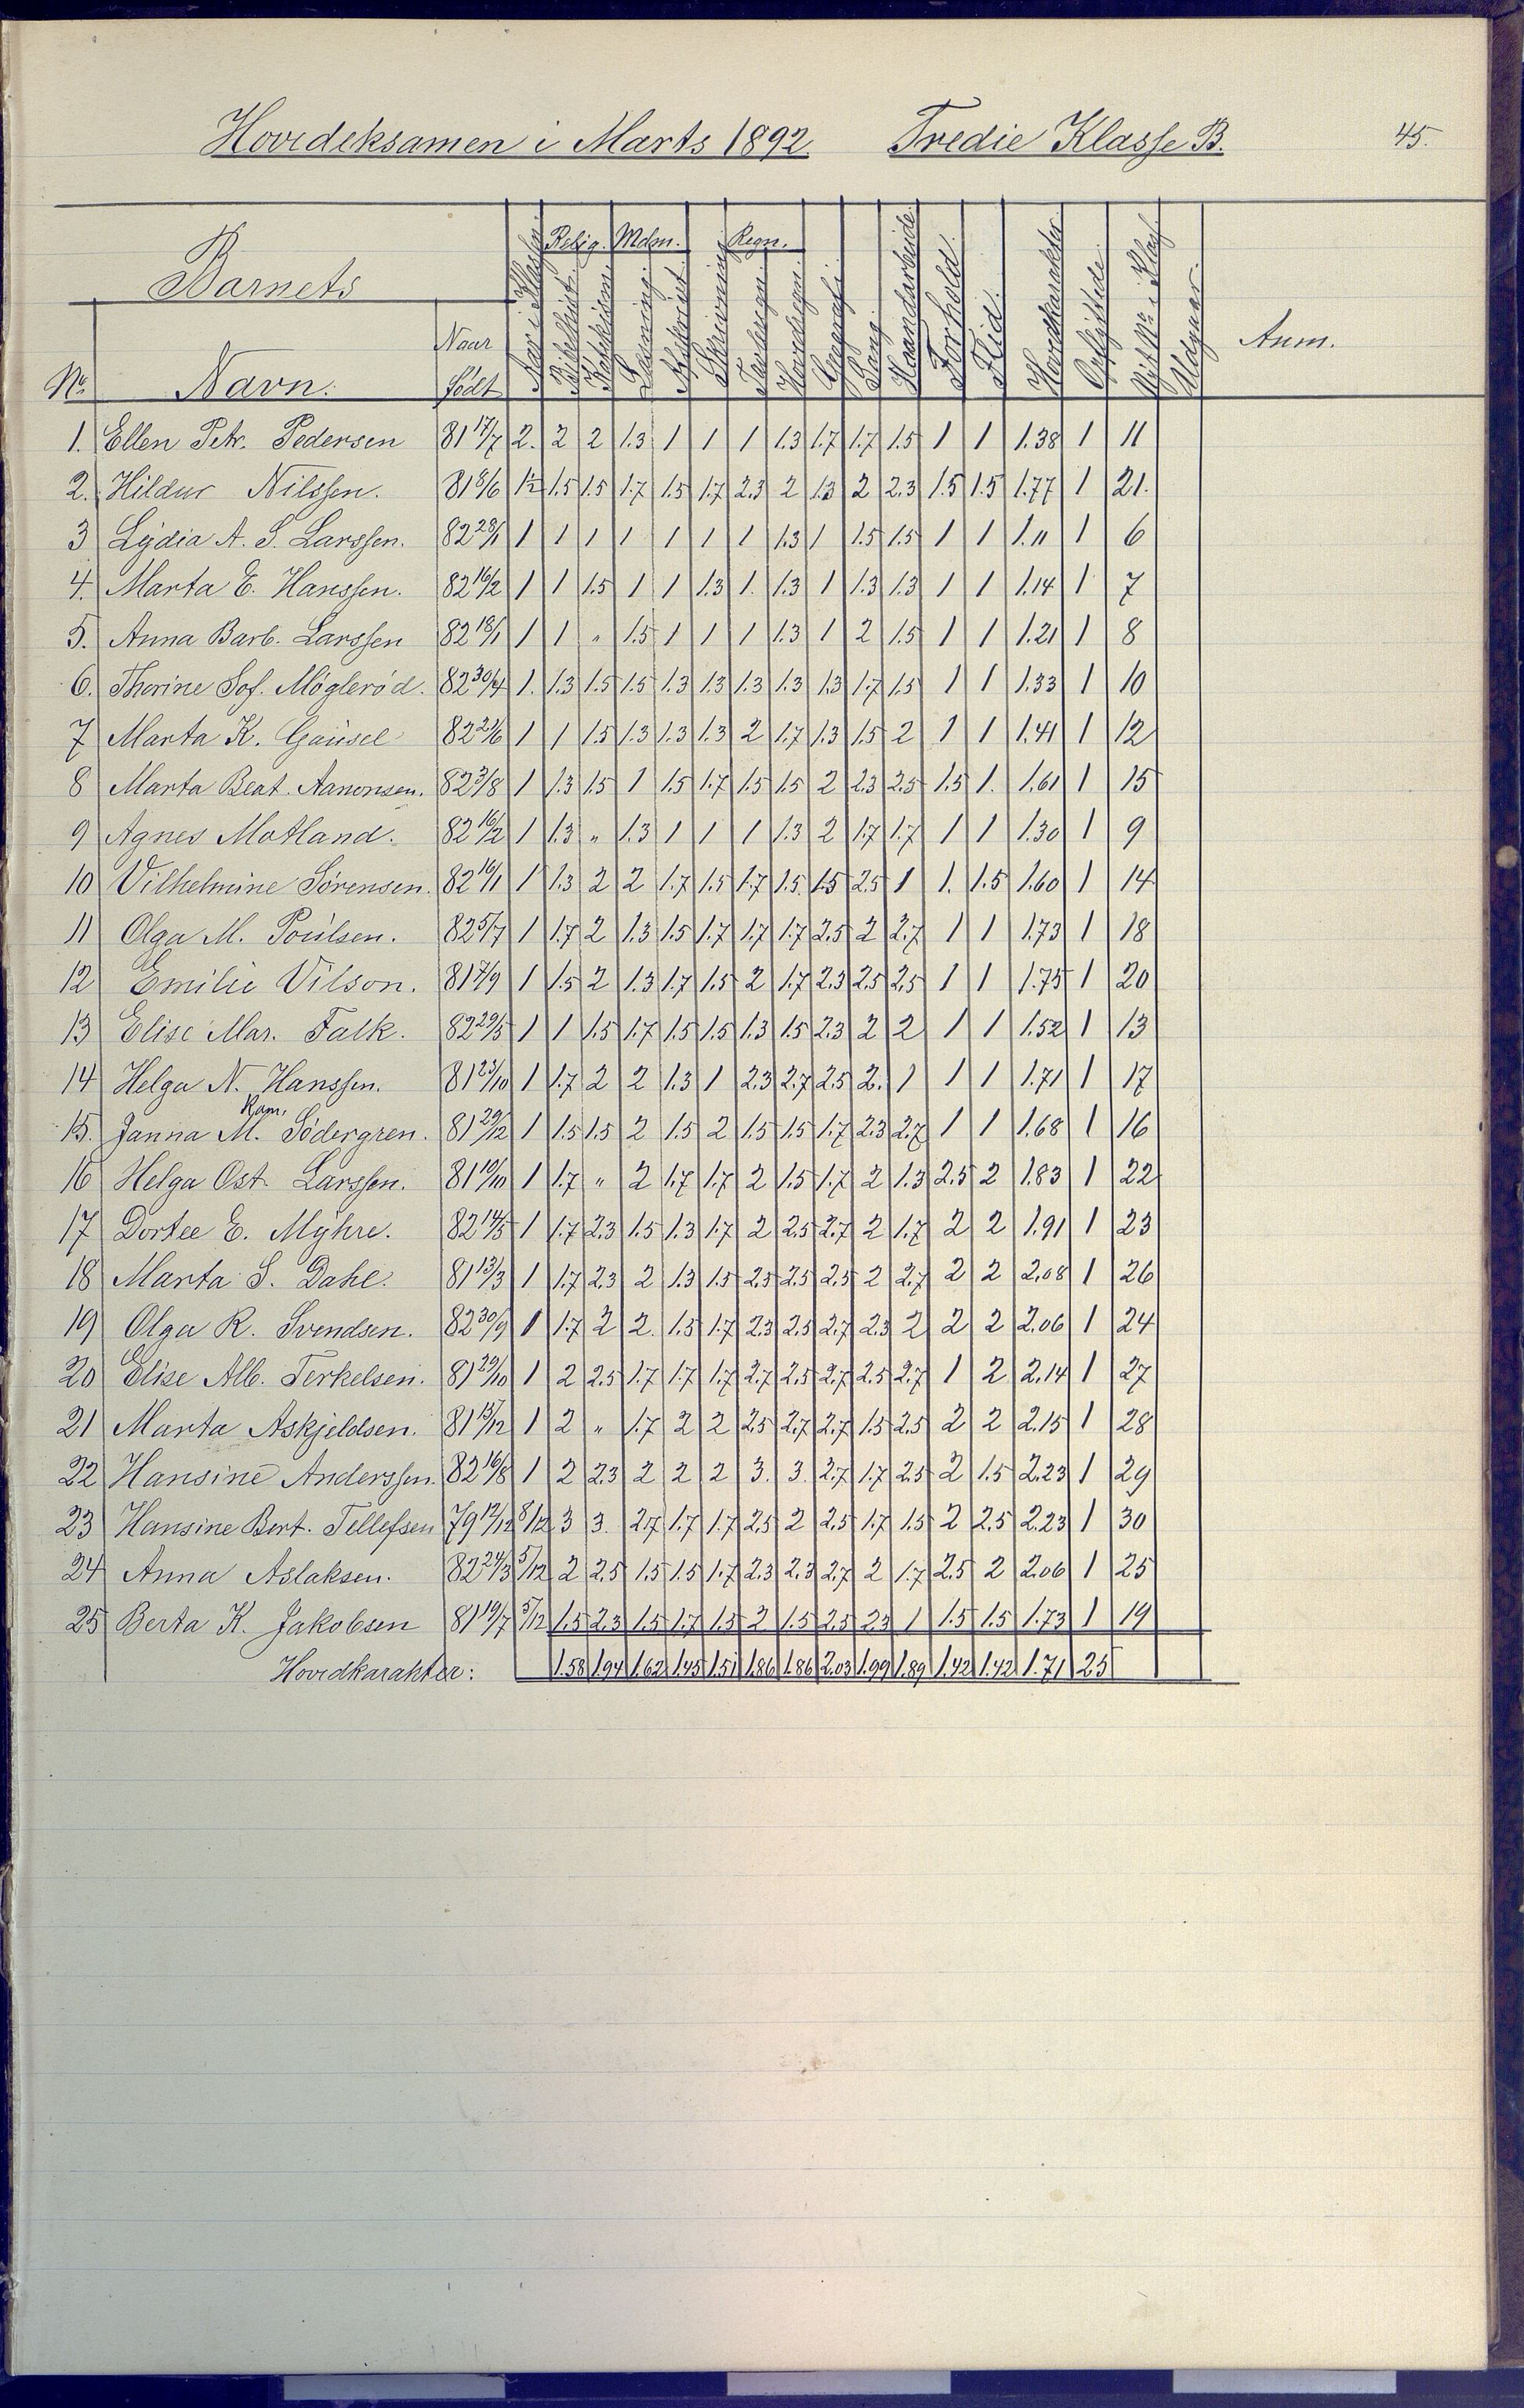 Hovedeksamen i Marts 1892. Tredie Klasse B. 45.
Barnets Aar i Klassen Relig. Mdsm. Regn.
Bibelhist. Katekism. Læsning Afskrivt. Skrivning Tavleregn. Hovedregn. Geografi. Sang. Haandarbeide. Forhold. Flid. Hovedkarakter. Opflyttede. Nyt No. i Klas. Udgaar. Anm.
No. Navn. Naar født
1. Ellen Petr. Pedersen 81 17/7 2. 2 2 1.3 1 1 1 1.3 1.7 1.7 1.5 1 1 1.38 1 11
2. Hildur Nilssen. 81 8/6 1½ 1.5 1.5 1.7 1.5 1.7 2.3 2 1.3 2 2.3 1.5 1.5 1.77 1 21.
3 Lydia A. S. Larssen. 82 28/1 1 1 1 1 1 1 1 1.3 1 1.5 1.5 1 1 1.11 1 6
4. Marta E. Hanssen. 82 16/2 1 1 1.5 1 1 1.3 1. 1.3 1 1.3 1.3 1 1 1.14 1 7
5. Anna Barb. Larssen 82 18/1 1 1 „ 1.5 1 1 1 1.3 1 2 1.5 1 1 1.21 1 8
6. Therine Sof. Möglerød. 82 30/4 1. 1.3 1.5 1.5 1.3 1.3 1.3 1.3 1.3 1.7 1.5 1 1 1.33 1 10
7 Marta K. Gausel 82 21/6 1 1 1.5 1.3 1.3 1.3 2 1.7 1.3 1.5 2 1 1 1.41 1 12
8 Marta Beat. Aanonsen. 82 3/8 1 1.3 1.5 1 1.5 1.7 1.5 1.5 2 2.3 2.5 1.5 1. 1.61 1 15
9 Agnes Motland. 82 16/2 1 1.3 „ 1.3 1 1 1 1.3 2 1.7 1.7 1 1 1.30 1 9
10 Vilhelmine Sörensen. 82 16/1 1 1.3 2 2 1.7 1.5 1.7 1.5. 1.5 2.5 1 1. 1.5 1.60 1 14
11 Olga M. Poulsen. 82 5/7 1 1.7 2 1.3 1.5 1.7 1.7 1.7 2.5 2 2.7 1 1 1.73 1 18
12 Emilie Vilson. 81 7/9 1 1.5 2 1.3 1.7 1.5 2 1.7 2.3 2.5 2.5 1 1 1.75 1 20
13 Elise Mar. Falk. 82 29/5 1 1 1.5 1.7 1.5 1.5 1.3 1.5 2.3 2 2 1 1 1.52 1 13
14 Helga N. Hanssen. 81 23/10 1 1.7 2 2 1.3 1 2.3 2.7 2.5 2. 1 1 1 1.71 1 17
Ram.
15. Janna M. Södergren. 81 29/12 1 1.5 1.5 2 1.5 2 1.5 1.5 1.7 2.3 2.7 1 1 1.68 1 16
16 Helga Ost. Larssen. 81 10/10 1 1.7 „ 2 1.7 1.7 2 1.5 1.7 2 1.3 2.5 2 1.83 1 22
17 Dortee E. Myhre. 82 14/5 1 1.7 2.3 1.5 1.3 1.7 2 2.5 2.7 2 1.7 2 2 1.91 1 23
18 Marta S. Dahl. 81 13/3 1 1.7 2.3 2 1.3 1.5 2.5 2.5 2.5 2 2.7 2 2 2.08 1 26
19 Olga R. Svendsen. 82 30/9 1 1.7 2 2. 1.5 1.7 2.3 2.5 2.7 2.3 2 2 2 2.06 1 24
20 Elise Alb. Terkelsen. 81 29/10 1 2 2.5 1.7 1.7 1.7 2.7 2.5 2.7 2.5 2.7 1 2 2.14 1 27
21 Marta Askjeldsen. 81 15/12 1 2 „ 1.7 2 2 2.5 2.7 2.7 1.5 2.5 2 2 2.15 1 28
22 Hansine Anderssen. 82 16/8 1 2 2.3 2 2 2 3. 3. 2.7 1.7 2.5 2 1.5 2.23 1 29
23 Hansine Bert. Tellefsen 79 12/12 8/12 3 3. 2.7 1.7 1.7 2.5 2 2.5 1.7 1.5 2 2.5 2.23 1 30
24 Anna Aslaksen. 82 24/3 5/12 2 2.5 1.5 1.5 1.7 2.3 2.3 2.7 2 1.7 2.5 2 2.06 1 25
25 Berta K. Jakobsen 81 19/7 5/12 1.5 2.3 1.5 1.7 1.5 2 1.5 2.5 2.3 1 1.5 1.5 1.73 1 19
Hovedkarakter: 1.58 1.94 1.62 1.45 1.51 1.86 1.86 2.03 1.99 1.89 1.42 1.42 1.71 25